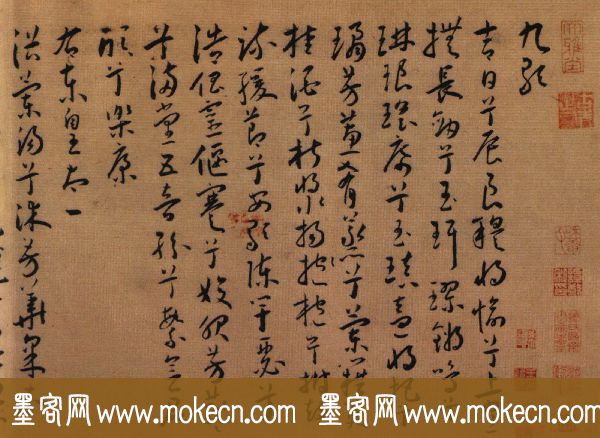 九歌
吉日兮辰良穆將愉兮上
撫長劍兮玉珥璆鏘鳴
琳琅瑤席兮玉瑱盍將把
瓊芳蕙肴蒸兮蘭藉
桂酒兮椒漿揚枹兮拊
疏緩節兮安歌陳竽瑟兮
浩倡靈偃蹇兮姣服芳菲
兮滿堂五音紛兮繁會
欣兮樂康
右東皇太一
浴蘭湯兮沐芳華采
墨客网 www.mokecn.com 墨客网 www.mokecn.com